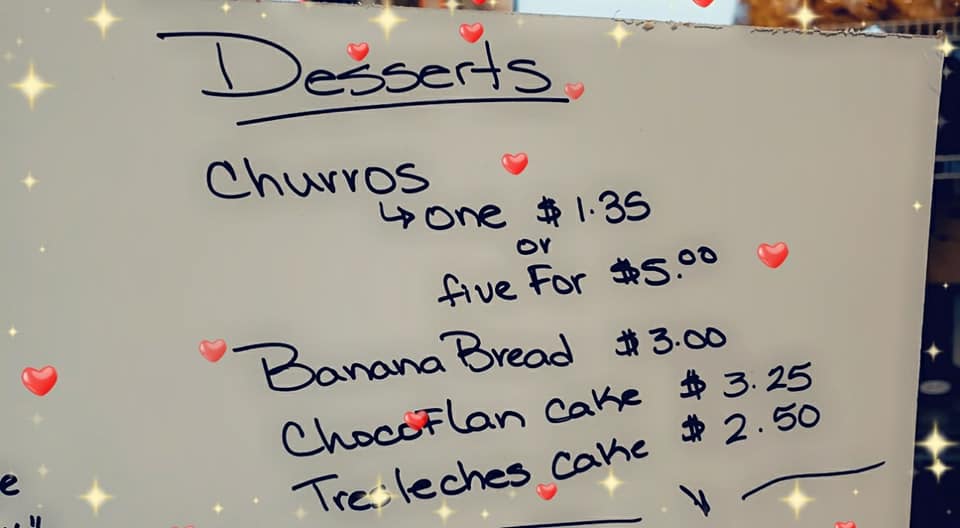 Desserts
Churros
↳ one $ 1.35
or
five For $5.00
Banana Bread $3.00
ChocoFlan cake $ 3.25
Tresleches cake $ 2.50
e